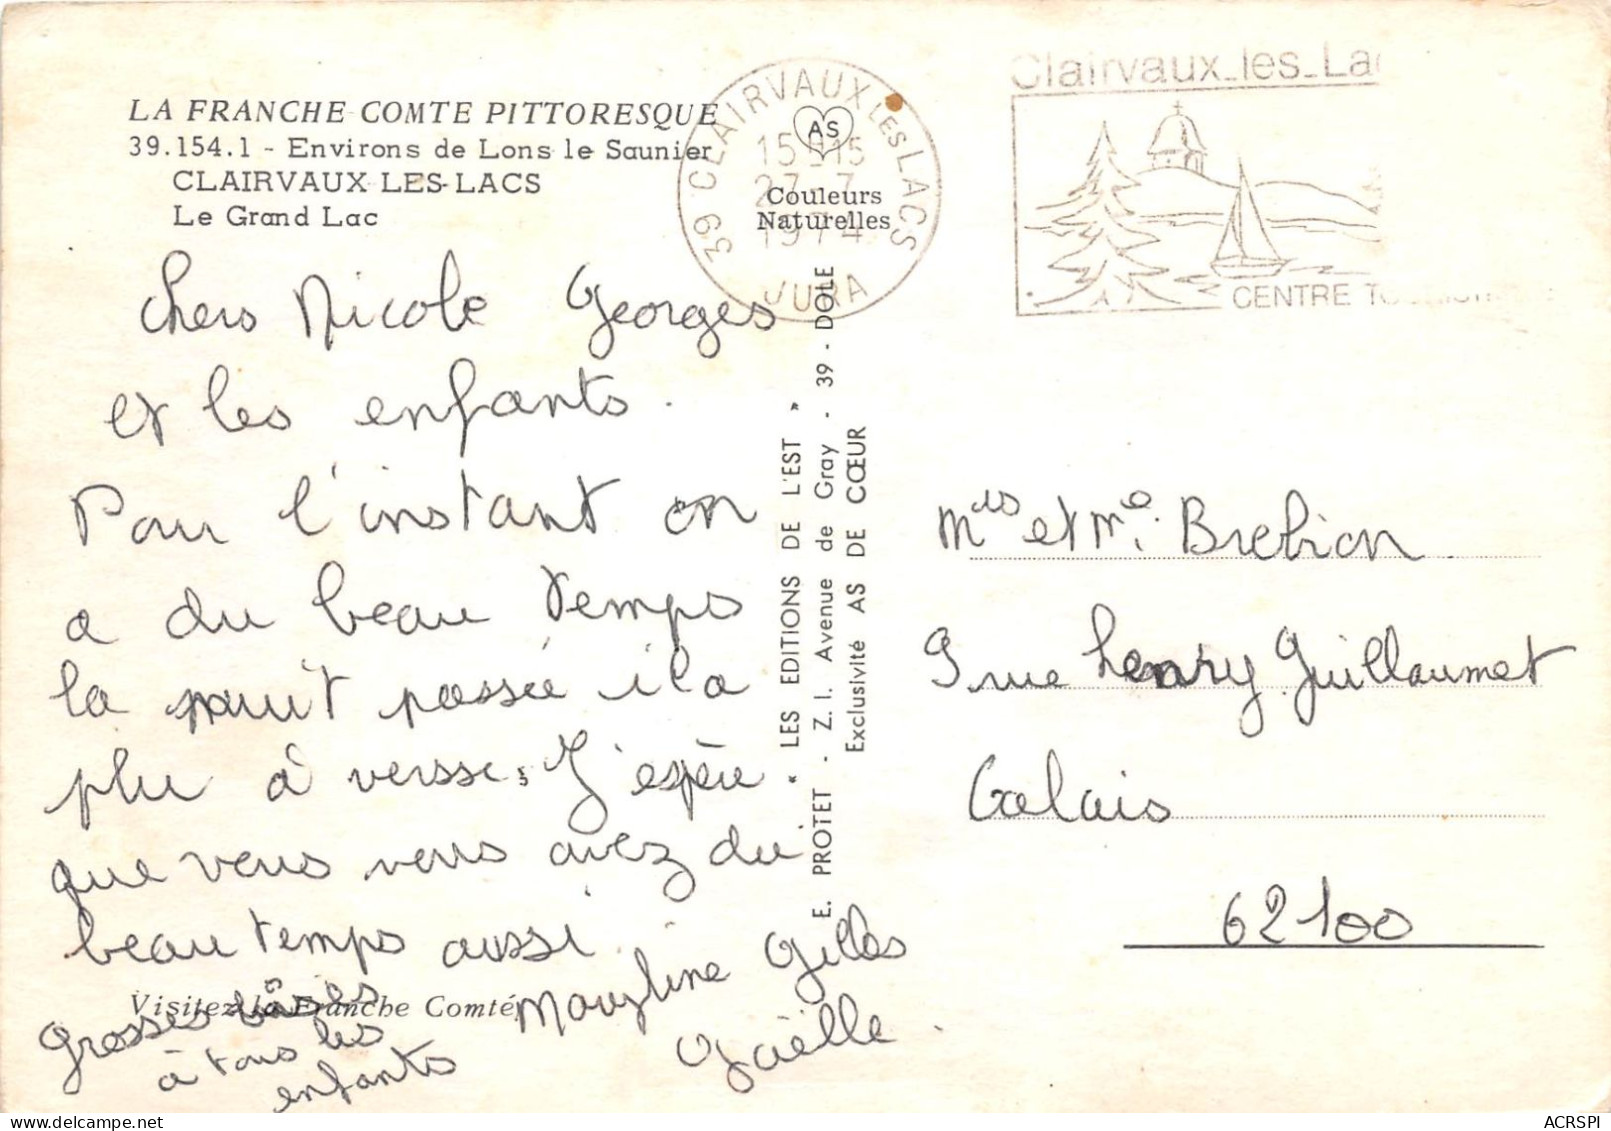 LA FRANCHE-COMTE PITTORESQUE
39.154.1 - Environs de Lons le Saunier
CLAIRVAUX-LES-LACS
Le Grand Lac
AS
Couleurs
Naturelles
39 CLAIRVAUX LES LACS
15H15
27-7
1974
JURA
Clairvaux-les-Lac
CENTRE
Chers Nicole Georges
et les enfants.
Pour l'instant on
a du beau temps
la nuit passée il a
plu à verse, J'espère
que vous vous avez du
beau temps aussi
Grosses bâises
à tous les
enfants
Maryline Gilles
Gaëlle.
Visitez la Franche Comté
" LES EDITIONS DE L'EST "
E. PROTET - Z. I. Avenue de Gray - 39 - DOLE
Exclusivité AS DE CŒUR
Mrs et Me. Brebion
9 rue henry Guillaumet
Calais
62100
ACRSPI